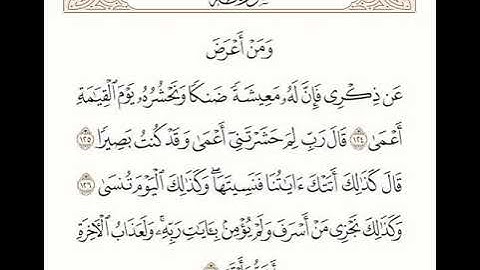 وَمَنْ أَعْرَضَ
عَن ذِكْرِى فَإِنَّ لَهُۥ مَعِيشَةً ضَنكًا وَنَحْشُرُهُۥ يَوْمَ ٱلْقِيَٰمَةِ
أَعْمَىٰ ١٢٤ قَالَ رَبِّ لِمَ حَشَرْتَنِىٓ أَعْمَىٰ وَقَدْ كُنتُ بَصِيرًا ١٢٥
قَالَ كَذَٰلِكَ أَتَتْكَ ءَايَٰتُنَا فَنَسِيتَهَا ۖ وَكَذَٰلِكَ ٱلْيَوْمَ تُنسَىٰ ١٢٦
وَكَذَٰلِكَ نَجْزِى مَنْ أَسْرَفَ وَلَمْ يُؤْمِنۢ بِـَٔايَٰتِ رَبِّهِۦ ۚ وَلَعَذَابُ ٱلْءَاخِرَةِ